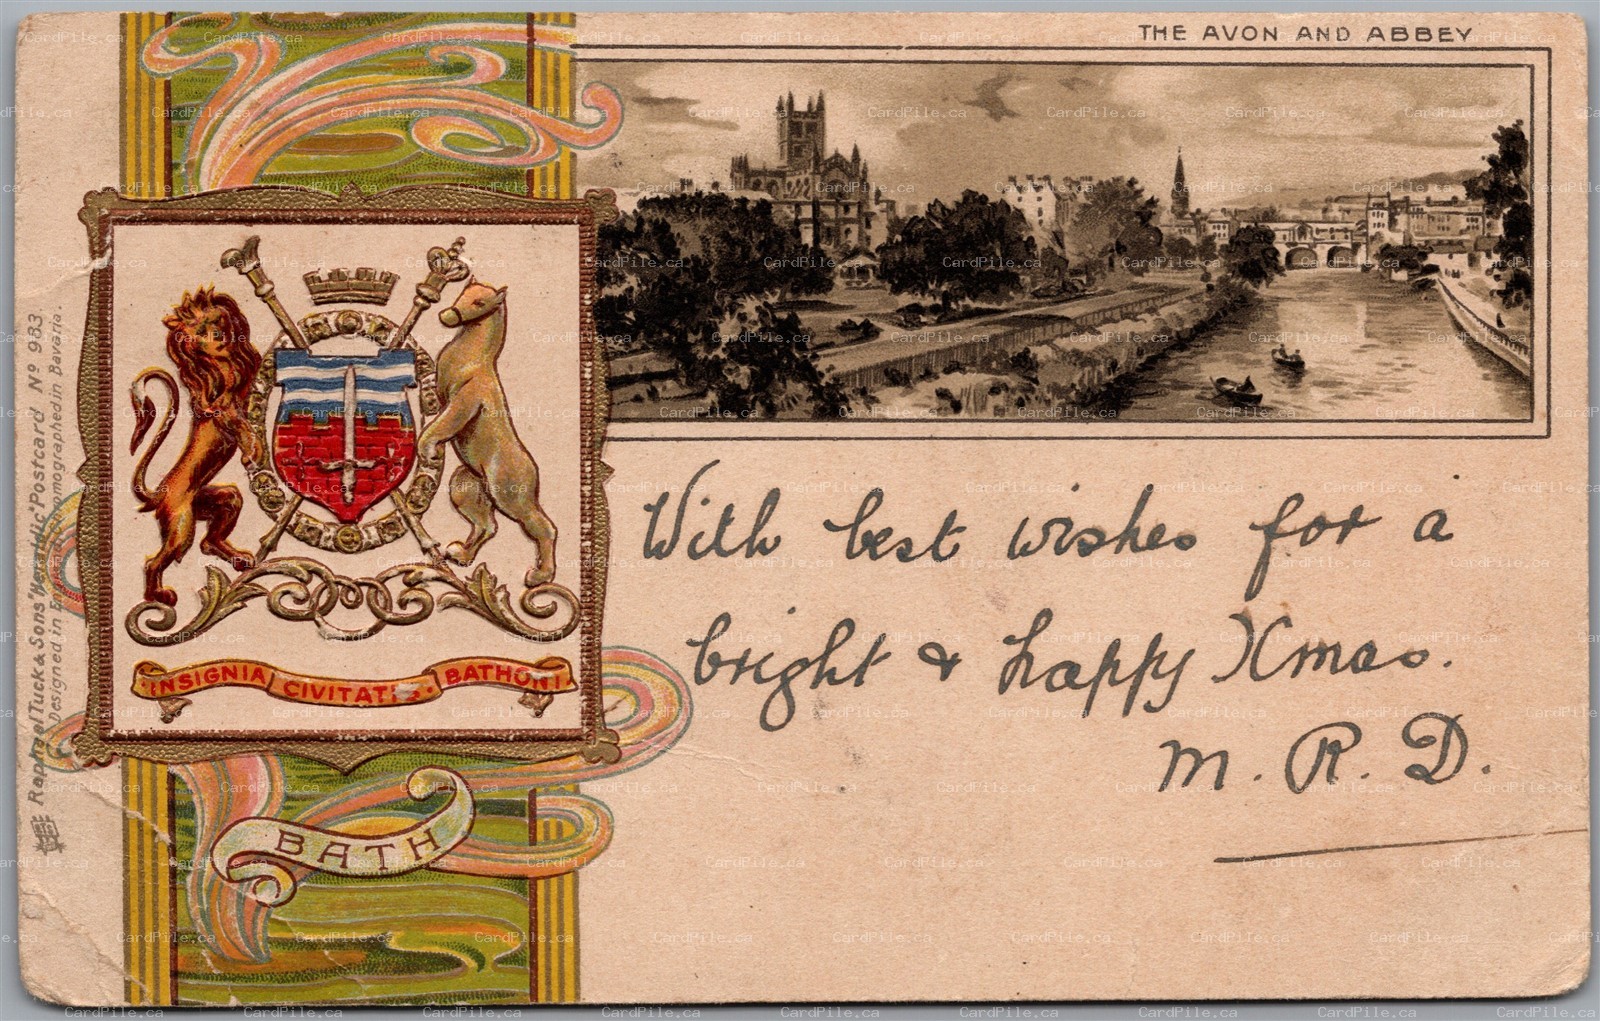 THE AVON AND ABBEY
With best wishes for a
bright & happy Xmas.
M. R. D.
INSIGNIA CIVITATIS BATHONI
BATH
Raphael Tuck & Sons' "Heraldic" Postcard Nº 983.
Designed in England Chromographed in Bavaria.
CardPile.ca